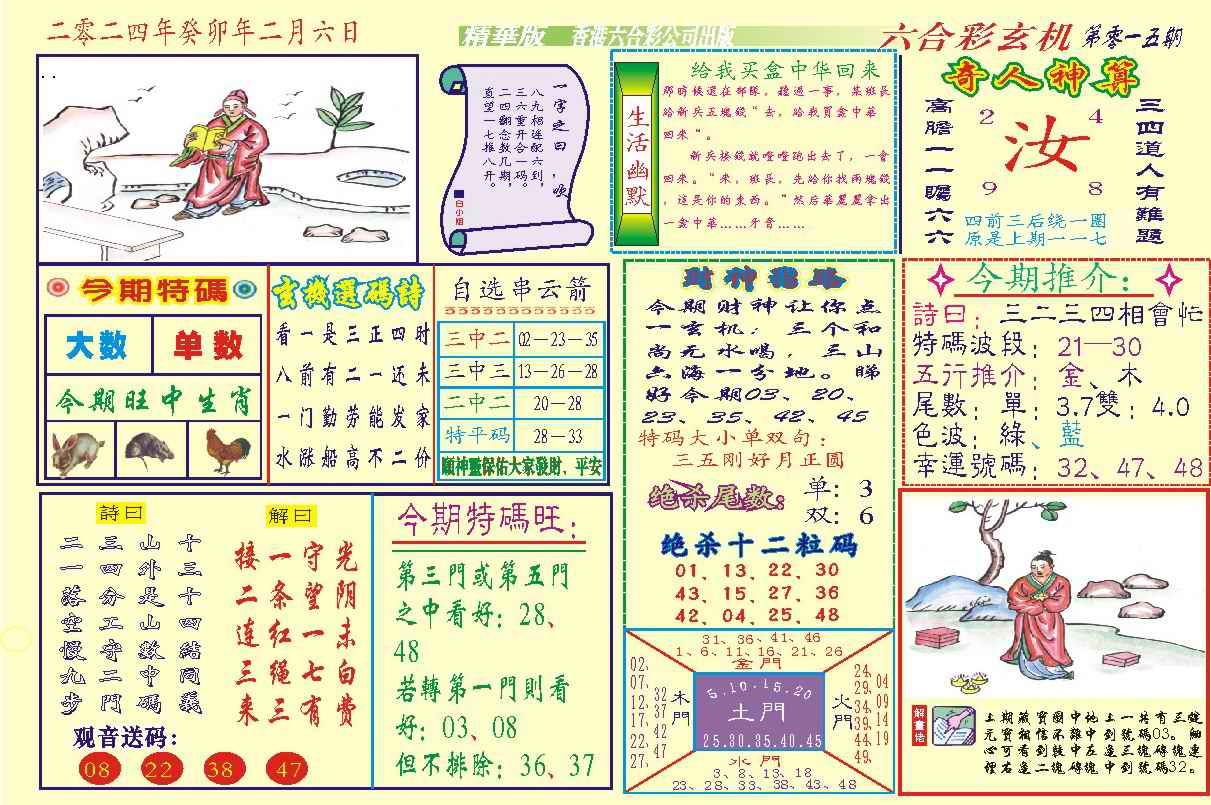 二零二四年癸卯年二月六日
精華版 香港六合彩公司出版
六合彩玄机 第零一五期
一字之曰：吹
八九相连配六到，
三六重开合一码。
二四翻念数几期，
直望一七推八开。
白小姐
生活幽默
给我买盒中华回来
那時候還在部隊，聽過一事，某班長
給新兵五塊錢“去，給我買盒中華
回來“。
新兵接錢就噔噔跑出去了，一會
回來。“來，班長，先給你找兩塊錢
，這是你的東西。“然后華麗麗拿出
一盒中華……牙膏……
奇人神算
高膽一一矚六六
三四道人有難題
2 4
汝
9 8
四前三后绕一圈
原是上期一一七
今期特碼
大数 单数
今期旺中生肖
玄機選碼詩
看一是三正四时
八前有二一还未
一门勤劳能发家
水涨船高不二价
自选串云箭
三中二 02—23—35
三中三 13—26—28
二中二 20—28
特平码 28—33
願神靈保佑大家發財、平安
財神
今期财神让你点
一玄机：三个和
尚无水喝，三山
六海一分地。睇
好今期03、20、
23、35、42、45
特码大小单双句：
三五刚好月正圆
绝杀尾数： 单：3
双：6
绝杀十二粒码
01、13、22、30
43、15、27、36
42、04、25、48
今期推介：
詩曰：三二三四相會忙
特碼波段：21—30
五行推介：金、木
尾數：單：3.7雙：4.0
色波：綠、藍
幸運號碼：32、47、48
詩曰
十三十四結同義
山外是山數中碼
三四分工守二門
二一落空慢九步
解曰
光阴未白费
守望一七有
一条红绳三
接二连三来
观音送码：
08 22 38 47
今期特碼旺：
第三門或第五門
之中看好：28、
48
若轉第一門則看
好：03、08
但不排除：36、37
31、36、41、46
1、6、11、16、21、26
金門
02、07、12、17、22、27、
32、37、42、47
木門
5.10.15.20
土門
25.30.35.40.45
火門
24、29、34、39、44、49、
04、09、14、19
水門
3、8、13、18
23、28、33、38、43、48
解畫佬
上期藏寶圖中地上一共有三錠
元寶相信不難中到號碼03。細
心可看到枝中左邊三塊磚塊連
裡右邊二塊磚塊中到號碼32。